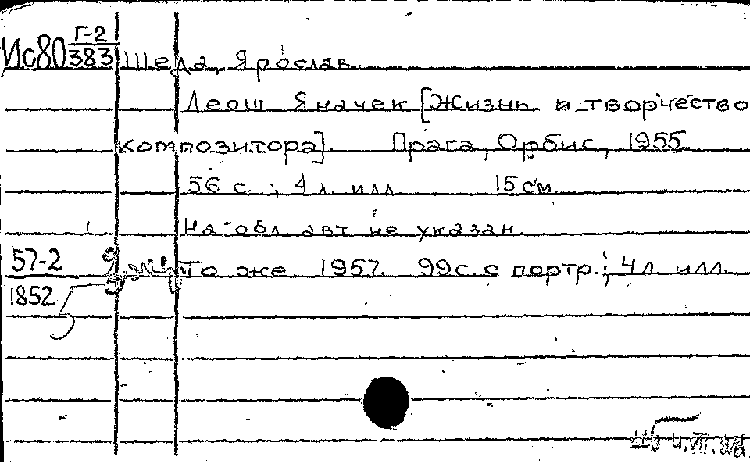 Ис80 Г-2
383 Шеда, Ярослав.
Леош Яначек [Жизнь и творчество
композитора]. Прага, Орбис, 1955
56 с.; 4 л. илл. 15 см.
На обл. авт. не указан.
57-2 То же 1957. 99 с. с портр.; 4 л. илл.
1852